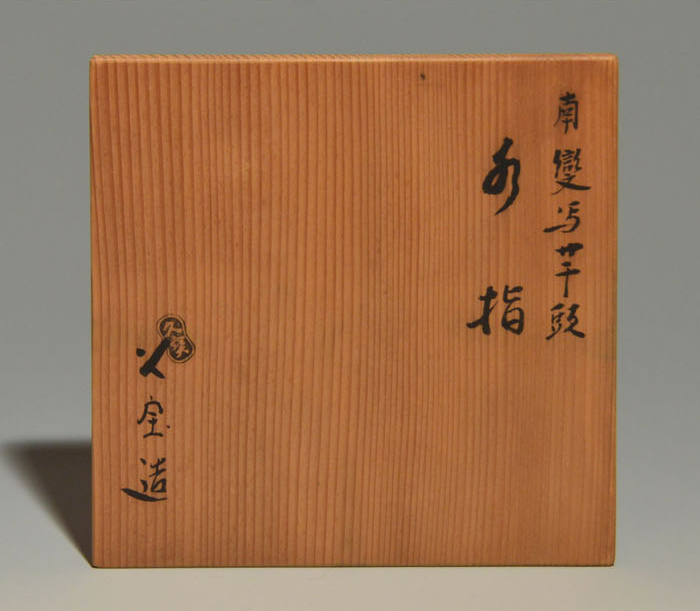 南蠻写芋頭
水指
久宝造